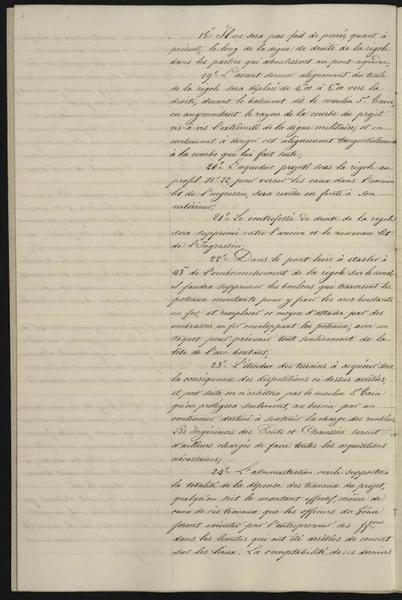 18.° Il ne sera pas fait de perrés, quant à
présent, le long de la digue de droite de la rigole
dans les parties qui aboutissent au pont-aqueduc;
19.° L'avant dernier alignement du tracé
de la rigole sera déplacé de 4,00 à 5,00 vers la
droite, devant le batiment dit le moulin St. Cain,
en augmentant le rayon de la courbe du projet
vis-à-vis l'extrémité de la digue militaire, et en
continuant à diriger cet alignement tangentiellement
à la courbe qui lui fait suite;
20.° L'aqueduc projeté sous la rigole au
profil N.° 22, pour verser les eaux dans l'ancien
lit de l'Ingressin, sera revêtu en fonte à son
intérieur;
21.° Le contrefossé de droite de la rigole
sera supprimé entre l'ancien et le nouveau lit
de l'Ingressin;
22.° Dans le pont-levis à établir à
43.m de l'embranchement de la rigole sur le canal,
il faudra supprimer les boulons que traversent les
poteaux montants pour y fixer les arcs-boutants
en fer, et remplacer ce moyen d'attache par des
embrasses en fer enveloppant les poteaux, avec un
taquet pour prévenir tout soulèvement de la
tête de l'arc-boutant;
23.° L'étendue des terrains à acquérir sera
la conséquence des dispositions ci-dessus arrêtées,
et par suite on n'achètera pas le moulin St. Cain
qu'on protégera seulement, au besoin, par un
contremur destiné à soutenir la charge des remblais.
Les Ingénieurs des Ponts et Chaussées seront
d'ailleurs chargés de faire toutes les acquisitions
nécessaires;
24.° L'administration civile supportera
la totalité de la dépense des travaux du projet,
quelqu'en soit le montant effectif, même de
ceux de ces travaux que les officiers du Génie
feront exécuter par l'entrepreneur des ff.ons
dans les limites qui ont été arrêtées de concert
sur les lieux. La comptabilité de ces derniers